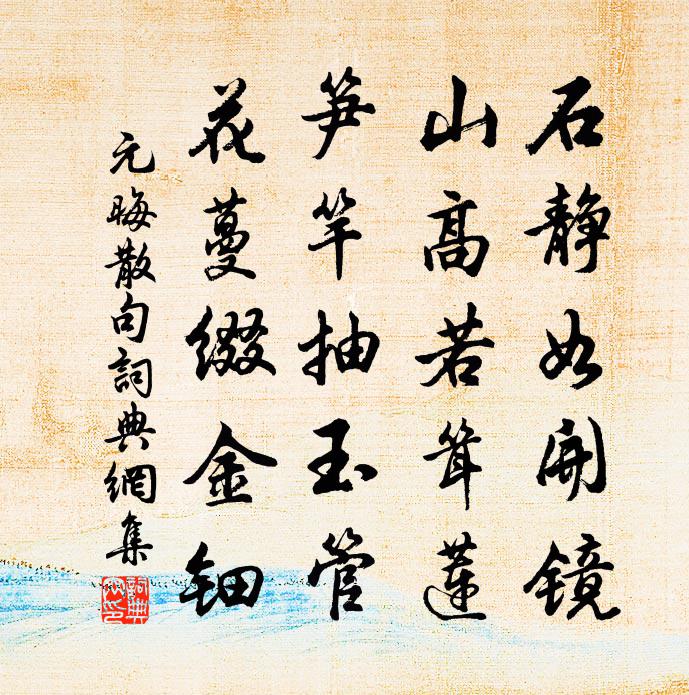 石静如开镜
山高若耸莲
笋竿抽玉管
花蔓缀金钿
元晦散句詞典網集